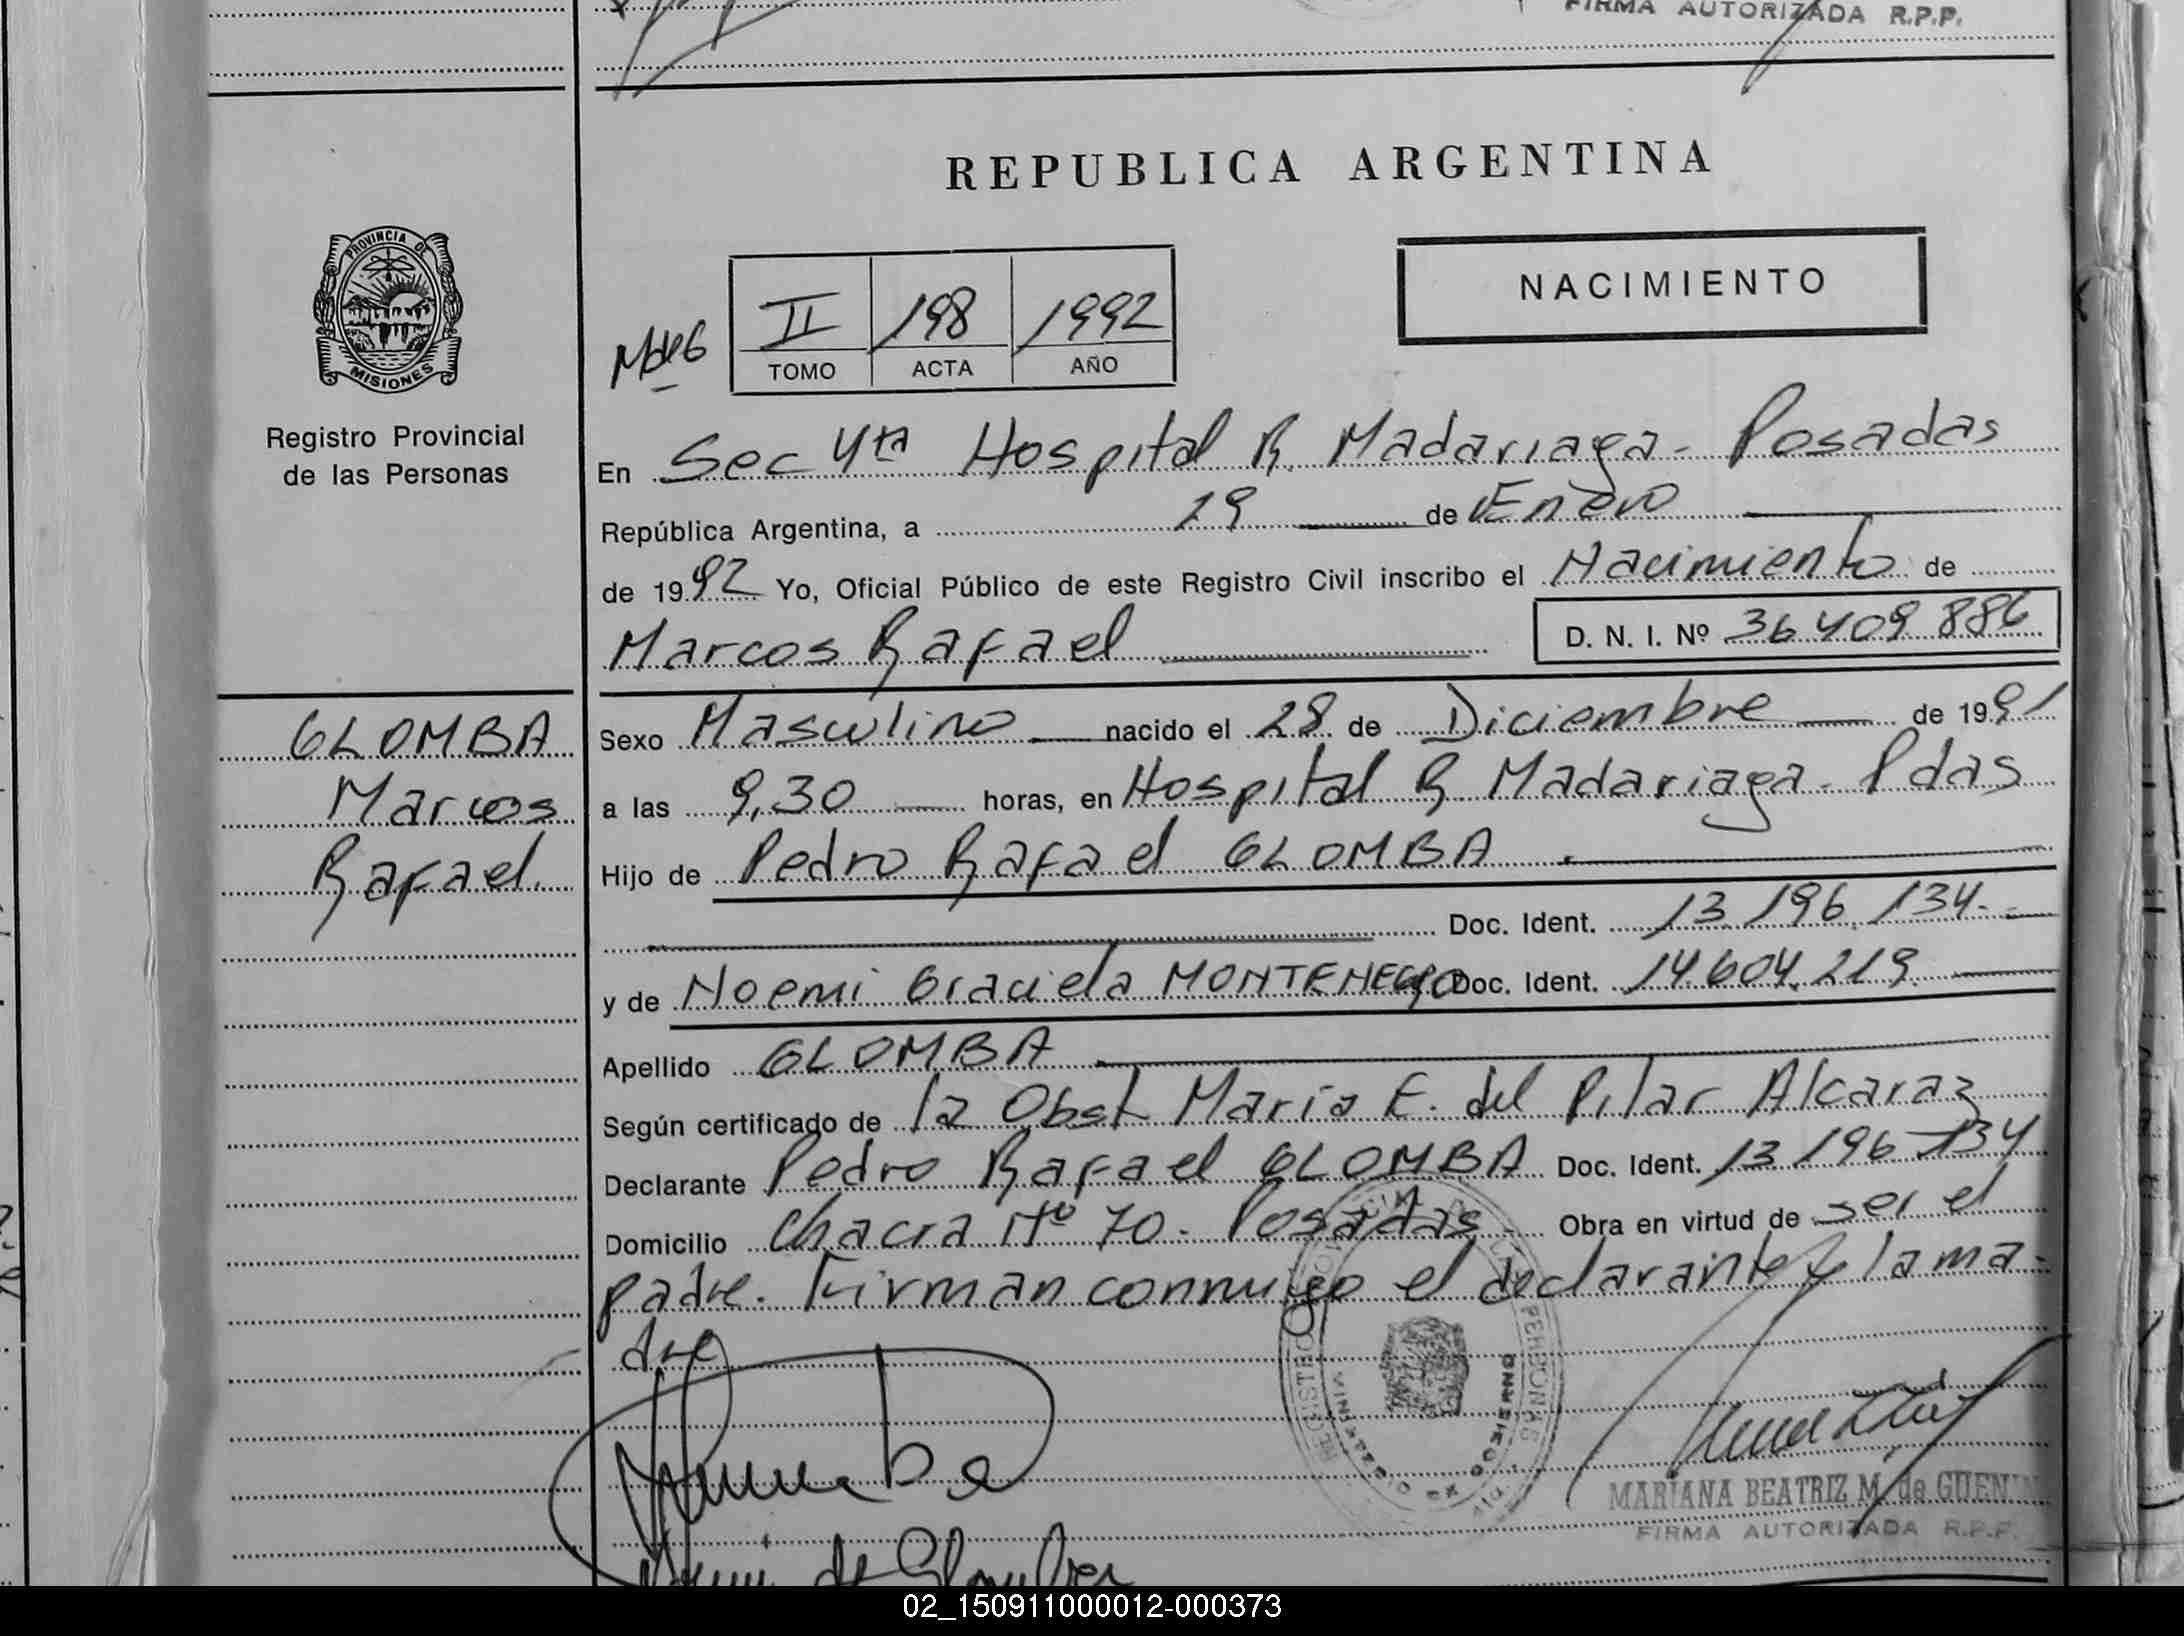 FIRMA AUTORIZADA R.P.P.
REPUBLICA ARGENTINA
NACIMIENTO
PROVINCIA DE
MISIONES
Registro Provincial
de las Personas
II 198 1992
TOMO ACTA AÑO
En Sec 4ta Hospital R. Madariaga - Posadas
República Argentina, a 29 de Enero
de 1992 Yo, Oficial Público de este Registro Civil inscribo el Nacimiento de
Marcos Rafael D. N. I. Nº 36 409 886
GLOMBA
Marcos
Rafael.
Sexo Masculino nacido el 28 de Diciembre de 1991
a las 9,30 horas, en Hospital R Madariaga - Pdas
Hijo de Pedro Rafael GLOMBA
Doc. Ident. 13 196 134.-
y de Noemi Graciela MONTENEGRO Doc. Ident. 14.604.219.
Apellido GLOMBA
Según certificado de la Obst Maria E. del Pilar Alcaraz
Declarante Pedro Rafael GLOMBA Doc. Ident. 13 196 134
Domicilio Chacra Nº 70 - Posadas - Obra en virtud de ser el
padre. Firman conmigo el declarante y la ma-
dre
MARIANA BEATRIZ M. de GUENIN
FIRMA AUTORIZADA R.P.P.
02_150911000012-000373